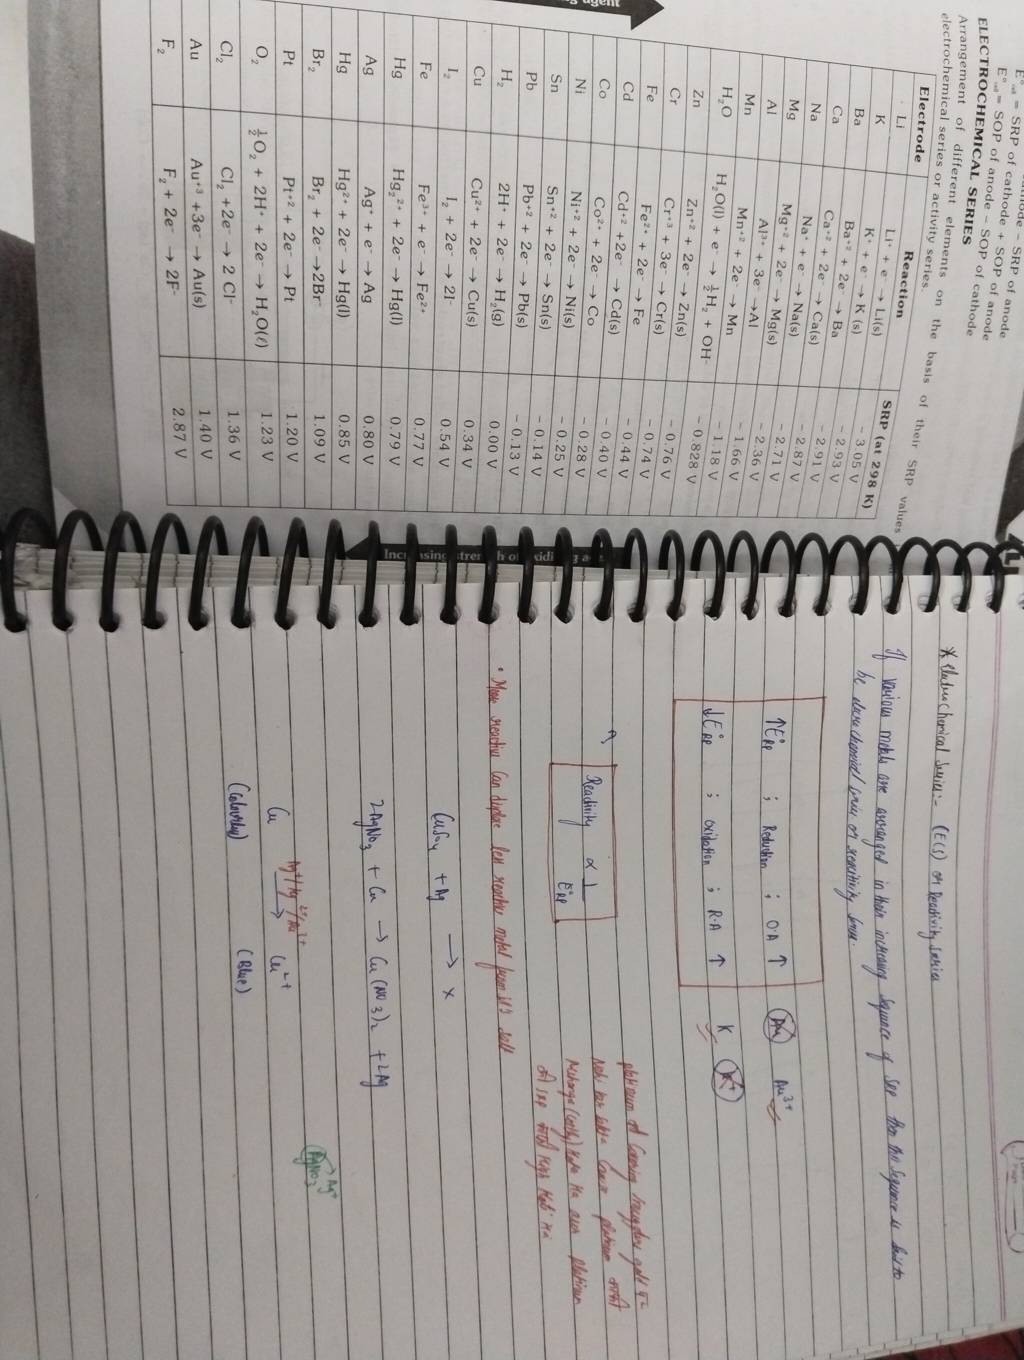 E°cell = SRP of cathode + SOP of anode
E°cell = SOP of anode – SOP of cathode
ELECTROCHEMICAL SERIES
Arrangement of different elements on the basis of their SRP values
electrochemical series or activity series.
Electrode Reaction SRP (at 298 K)
Li Li⁺ + e⁻ → Li(s) – 3.05 V
K K⁺ + e⁻ → K (s) – 2.93 V
Ba Ba⁺² + 2e⁻ → Ba – 2.91 V
Ca Ca⁺² + 2e⁻ → Ca(s) – 2.87 V
Na Na⁺ + e⁻ → Na(s) – 2.71 V
Mg Mg⁺² + 2e⁻ → Mg(s) – 2.36 V
Al Al³⁺ + 3e⁻ → Al – 1.66 V
Mn Mn⁺² + 2e⁻ → Mn – 1.18 V
H₂O H₂O(l) + e⁻ → ½H₂ + OH⁻ – 0.828 V
Zn Zn⁺² + 2e⁻ → Zn(s) – 0.76 V
Cr Cr⁺³ + 3e⁻ → Cr(s) – 0.74 V
Fe Fe²⁺ + 2e⁻ → Fe – 0.44 V
Cd Cd⁺² + 2e⁻ → Cd(s) – 0.40 V
Co Co²⁺ + 2e⁻ → Co – 0.28 V
Ni Ni⁺² + 2e⁻ → Ni(s) – 0.25 V
Sn Sn⁺² + 2e⁻ → Sn(s) – 0.14 V
Pb Pb⁺² + 2e⁻ → Pb(s) – 0.13 V
H₂ 2H⁺ + 2e⁻ → H₂(g) 0.00 V
Cu Cu²⁺ + 2e⁻ → Cu(s) 0.34 V
I₂ I₂ + 2e⁻ → 2I⁻ 0.54 V
Fe Fe³⁺ + e⁻ → Fe²⁺ 0.77 V
Hg Hg₂²⁺ + 2e⁻ → Hg(l) 0.79 V
Ag Ag⁺ + e⁻ → Ag 0.80 V
Hg Hg²⁺ + 2e⁻ → Hg(l) 0.85 V
Br₂ Br₂ + 2e⁻ → 2Br⁻ 1.09 V
Pt Pt⁺² + 2e⁻ → Pt 1.20 V
O₂ ½O₂ + 2H⁺ + 2e⁻ → H₂O(ℓ) 1.23 V
Cl₂ Cl₂ + 2e⁻ → 2 Cl⁻ 1.36 V
Au Au⁺³ + 3e⁻ → Au(s) 1.40 V
F₂ F₂ + 2e⁻ → 2F⁻ 2.87 V
agent
* Electrochemical Series:- (ECS) or Reactivity Series
If various metals are arranged in their increasing sequence of SRP then the sequence is said to
be electrochemical series or reactivity series
↑E°RP ; Reduction ; O.A ↑ Au Au³⁺
↓E°RP ; oxidation ; R.A ↑ K K⁺
Reactivity ∝ 1/E°RP
• More reactive can displace less reactive metal from it's salt
CuSO₄ + Ag → x
2AgNO₃ + Cu → Cu(NO₃)₂ + 2Ag
AgNO₃ → Ag⁺
Cu → Cu²⁺
(Colourless) (Blue)